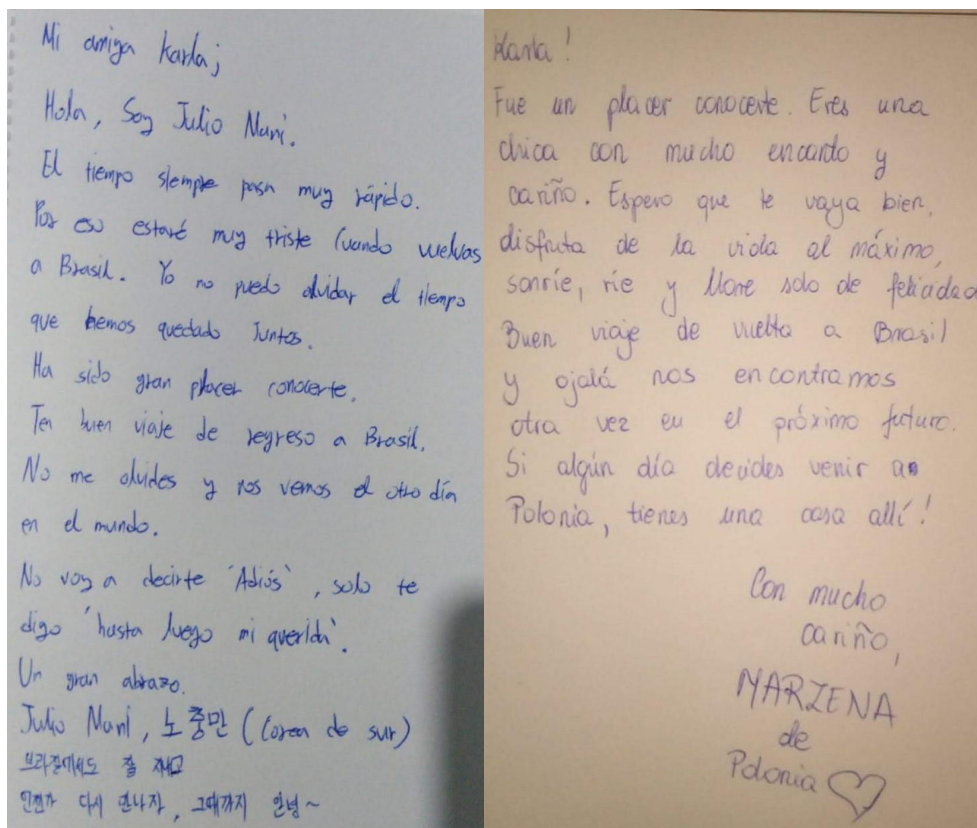 Mi amiga Karla;
Hola, Soy Julio Muni.
El tiempo siempre pasa muy rápido.
Por eso estaré muy triste Cuando vuelvas
a Brasil. Yo no puedo olvidar el tiempo
que hemos quedado Juntos.
Ha sido gran placer conocerte.
Ten buen viaje de regreso a Brasil.
No me olvides y nos vemos el otro día
en el mundo.
No voy a decirte 'Adiós', solo te
digo 'hasta luego mi querida'.
Un gran abrazo.
Julio Muni, 노중만 (Corea de sur)
브라질에서도 잘 지내고
언젠가 다시 만나자, 그때까지 안녕~
Karla!
Fue un placer conocerte. Eres una
chica con mucho encanto y
cariño. Espero que te vaya bien,
disfruta de la vida al máximo,
sonríe, ríe y llore solo de felicidad
Buen viaje de vuelta a Brasil
y ojalá nos encontramos
otra vez en el próximo futuro.
Si algún día decides venir a
Polonia, tienes una casa allí!
Con mucho
cariño,
MARZENA
de
Polonia